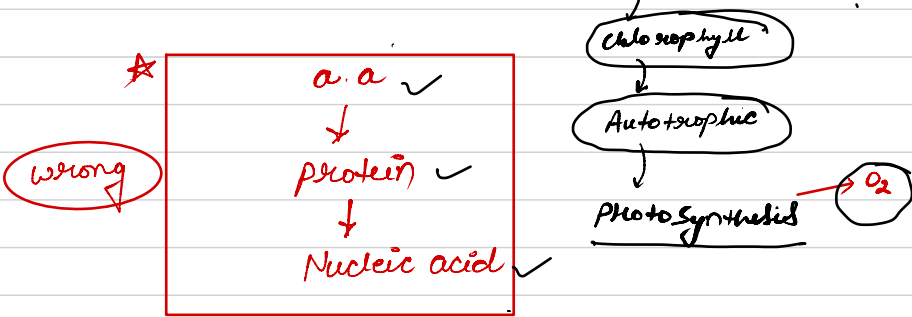 a.a
protein
Nucleic acid
wrong
Chlorophyll
Autotrophic
Photosynthesis
O2